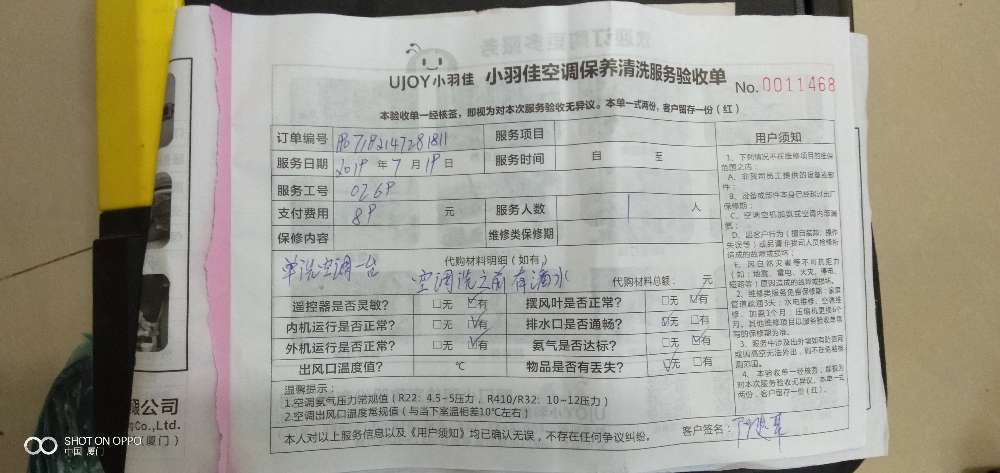 UJOY小羽佳 小羽佳空调保养清洗服务验收单 No.0011468
本验收单一经核签，即视为对本次服务验收无异议。本单一式两份，客户留存一份（红）
订单编号 服务项目
服务日期 2019 年 7 月 19 日 服务时间 自 至
服务工号 0269
支付费用 89 元 服务人数 1 人
保修内容 维修类保修期
代购材料明细（如有）
单洗空调一台 空调洗之前有滴水 代购材料总额： 元
遥控器是否灵敏？ □无 □有 摆风叶是否正常？ □无 □有
内机运行是否正常？ □无 □有 排水口是否通畅？ □无 □有
外机运行是否正常？ □无 □有 氨气是否达标？ □无 □有
出风口温度值？ ℃ 物品是否有丢失？ □无 □有
温馨提示：
1.空调氨气压力常规值（R22：4.5-5压力，R410/R32：10-12压力）
2.空调出风口温度常规值（与当下室温相差10℃左右）
本人对以上服务信息以及《用户须知》均已确认无误，不存在任何争议纠纷。 客户签名：
用户须知
1、下列情况不在维修项目的维保
范围之内：
A、非我司员工提供的设备或部
件；
B、设备或部件本身已经超过出厂
保修期；
C、空调空机加氨或空调内有漏
氨；
D、因客户行为（擅自装卸、操作
失误等）或品请非我司人员检修所
造成的故障或损坏；
E、因自然灾害等不可抗拒力
（如：地震、雷电、火灾、停电、
短路等）原因造成的故障或损坏。
2、维修类服务免费保修期：家庭
管道疏通3天；水电维修、空调维
修、加氨1个月，压缩机更换6个
月，其他维修项目以服务验收单填
写的保修期为准。
4、本验收单一经核签，即视为
对本次服务验收无异议，本单一式
两份，客户留存一份（红）。
公司
Co.,Ltd.
厦门）
SHOT ON OPPO
中国 厦门